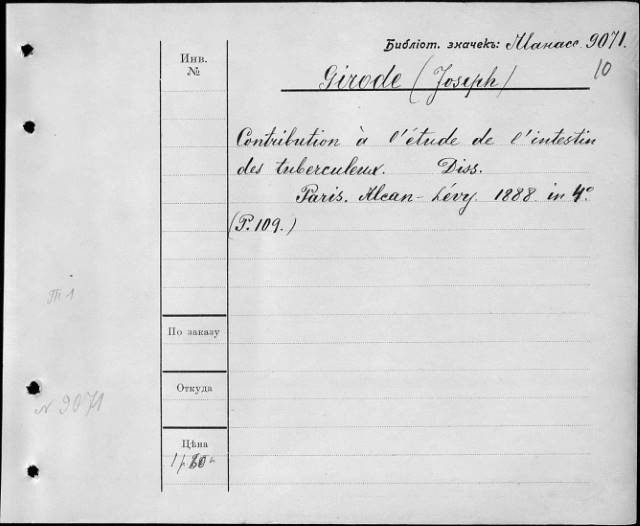 Библіот. значекъ: Манасс 9071.
10
Инв.
№
Girode (Joseph)
Contribution à l'étude de l'intestin
des tuberculeux. Diss.
Paris. Alcan-Lévy. 1888 in 4°
(P. 109.)
По заказу
Откуда
N 9071
Цѣна